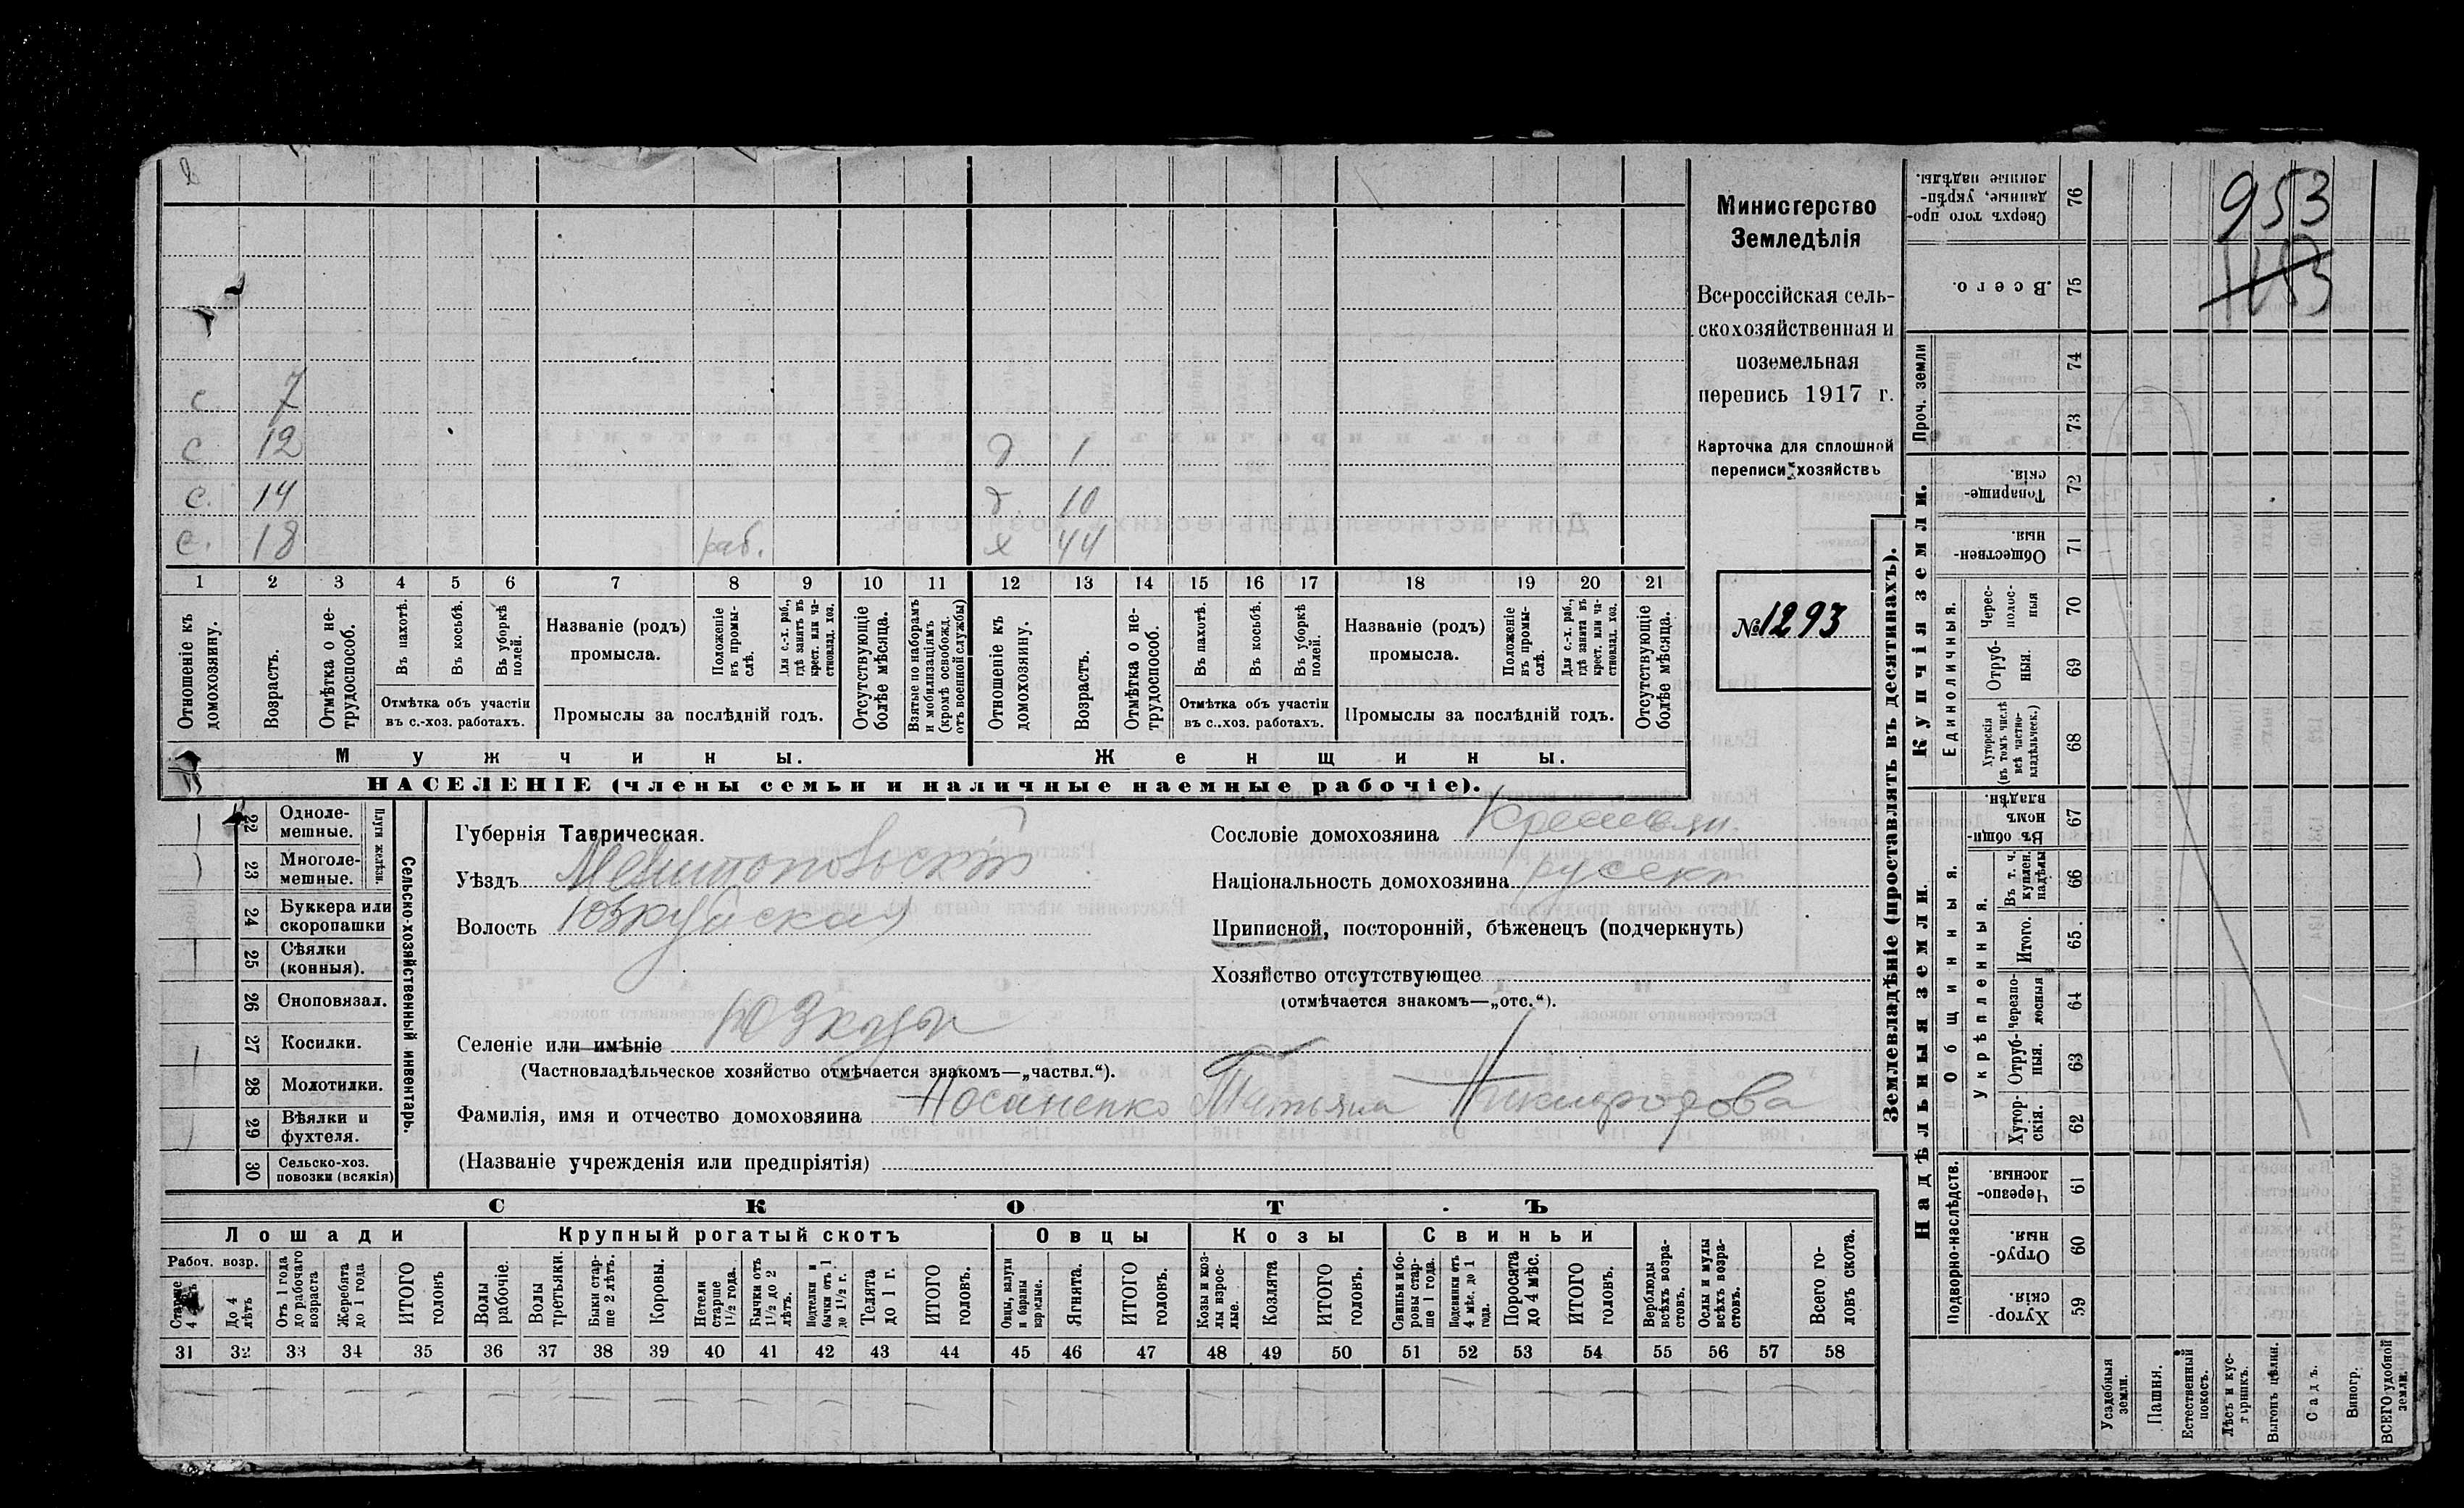 953
143
с. 7
с 12 д 1
с. 14 д. 10
с. 18 раб. х 44
1 2 3 4 5 6 7 8 9 10 11 12 13 14 15 16 17 18 19 20 21
Отношеніе къ домохозяину.
Возрастъ.
Отмѣтка о не-
трудоспособ.
Въ пахотѣ.
Въ косьбѣ.
Въ уборкѣ полей.
Отмѣтка объ участіи
въ с.-хоз. работахъ.
Названіе (родъ)
промысла.
Положеніе въ промы-
слѣ.
Для с.-х. раб.,
гдѣ занятъ въ
крест. или ча-
стновлад. хоз.
Промыслы за послѣдній годъ.
Отсутствующіе
болѣе мѣсяца.
Взятые по наборамъ
и мобилизаціямъ
(кромѣ освобожд.
отъ военной службы)
Отношеніе къ
домохозяину.
Возрастъ.
Отмѣтка о не-
трудоспособ.
Въ пахотѣ.
Въ косьбѣ.
Въ уборкѣ
полей.
Отмѣтка объ участіи
въ с.-хоз. работахъ.
Названіе (родъ)
промысла.
Положеніе
въ промы-
слѣ.
Для с.-х. раб.,
гдѣ занята въ
крест. или ча-
стновлад. хоз.
Промыслы за послѣдній годъ.
Отсутствующіе
болѣе мѣсяца.
Мужчины.
Женщины.
НАСЕЛЕНІЕ (члены семьи и наличные наемные рабочіе).
Министерство
Земледѣлія
Всероссійская сель-
скохозяйственная и
поземельная
перепись 1917 г.
Карточка для сплошной
переписи хозяйствъ
№ 1293
22 Одноле-
мешные.
23 Многоле-
мешные.
Плуги желѣзн.
24 Буккера или
скоропашки
25 Сѣялки
(конныя).
26 Сноповязал.
27 Косилки.
28 Молотилки.
29 Вѣялки и
фухтеля.
30 Сельско-хоз.
повозки (всякія)
Сельско-хозяйственный инвентарь.
Губернія Таврическая.
Уѣздъ Мелитопольскій
Волость Юзкуйская
Сословіе домохозяина Крестьян.
Національность домохозяина русск
Приписной, посторонній, бѣженецъ (подчеркнуть)
Хозяйство отсутствующее
(отмѣчается знакомъ—„отс.“).
Селеніе или имѣніе Юзкуи
(Частновладѣльческое хозяйство отмѣчается знакомъ—„частвл.“).
Фамилія, имя и отчество домохозяина Носаненко Татьяна Никифорова
(Названіе учрежденія или предпріятія)
СКОТЪ
Лошади
Крупный рогатый скотъ
Овцы
Козы
Свиньи
Рабоч. возр.
Старше
4 лѣтъ
До 4
лѣтъ
Отъ 1 года
до рабочаго
возраста
Жеребята
до 1 года
ИТОГО
головъ
Волы
рабочіе.
Волы
третьяки.
Быки стар-
ше 2 лѣтъ.
Коровы.
Нетели
старше
1½ года.
Бычки отъ
1½ до 2
лѣтъ.
Подтелки и
бычки отъ 1
до 1½ г.
Телята
до 1 г.
ИТОГО
головъ.
Овцы, валухи
и бараны
взрослые.
Ягнята.
ИТОГО
головъ.
Козы и коз-
лы взрос-
лые.
Козлята
ИТОГО
головъ.
Свиньи и бо-
ровы стар-
ше 1 года.
Подсвинки отъ
4 мѣс. до 1
года.
Поросята
до 4 мѣс.
ИТОГО
головъ.
Верблюды
всѣхъ возра-
стовъ.
Ослы и мулы
всѣхъ возра-
стовъ.
Всего го-
ловъ скота.
31 32 33 34 35 36 37 38 39 40 41 42 43 44 45 46 47 48 49 50 51 52 53 54 55 56 57 58
Землевладѣніе (проставлять въ десятинахъ).
Надѣльныя земли.
Купчія земли.
Проч. земли
Подворно-наслѣдств.
Общинныя.
Укрѣпленныя.
Единоличныя.
Хутор-
скія. 59
Отруб-
ныя. 60
Черезпо-
лосныя 61
Хутор-
скія. 62
Отруб-
ныя. 63
Черезпо-
лосныя 64
Итого. 65
Въ т. ч.
куплен.
надѣлы 66
Въ общин-
номъ
владѣн. 67
Хуторскія
(въ томъ числѣ
всѣ частно-
владѣльческ.) 68
Отруб-
ныя. 69
Черес-
полос-
ныя 70
Обществен-
ныя. 71
Товарище-
скія 72
73
74
Всего. 75
Сверхъ того про-
данные, укрѣп-
ленные надѣлы. 76
Усадебныя
земли.
Пашня.
Естественный
покосъ.
Лѣсъ и кус-
тарникъ.
Выгонъ цѣлин.
Садъ.
Виногр.
ВСЕГО удобной
земли.